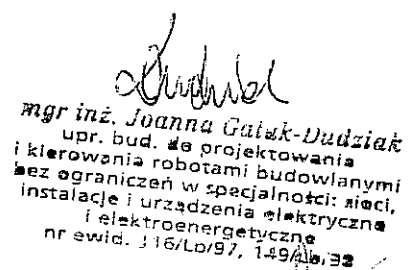 mgr inż. Joanna Gałek-Dudziak
upr. bud. do projektowania
i kierowania robotami budowlanymi
bez ograniczeń w specjalności: sieci,
instalacje i urządzenia elektryczne
i elektroenergetyczne
nr ewid. 116/Lb/97,